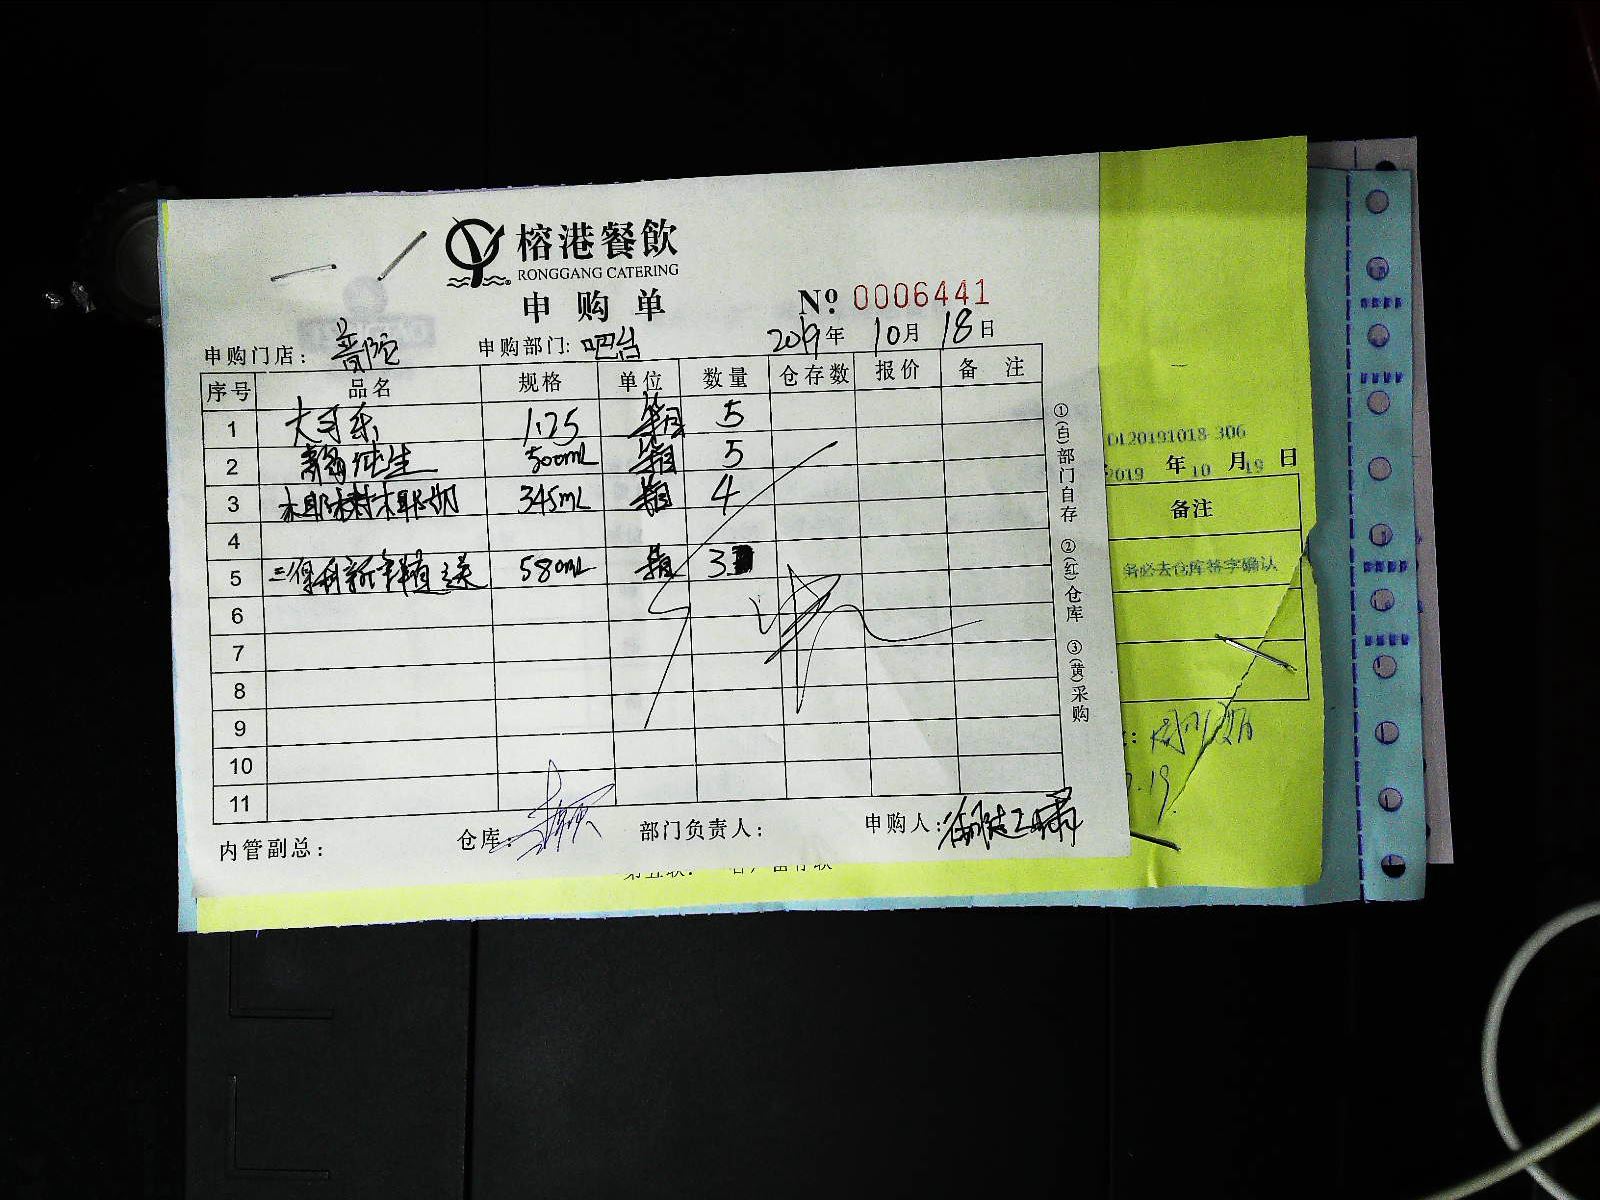 榕港餐飲
RONGGANG CATERING
申购单
№ 0006441
申购门店：普陀 申购部门：吧台 2019年10月18日
序号 品名 规格 单位 数量 仓存数 报价 备 注
1 大可乐 1.25 箱 5
2 纯生 500mL 箱 5
3 椰树椰奶 345mL 箱 4
4
5 580mL 箱 3
6
7
8
9
10
11
内管副总： 仓库： 部门负责人： 申购人：
①(白)部门自存 ②(红)仓库 ③(黄)采购
20191018-306
2019 年 10 月 19 日
备注
务必去仓库签字确认